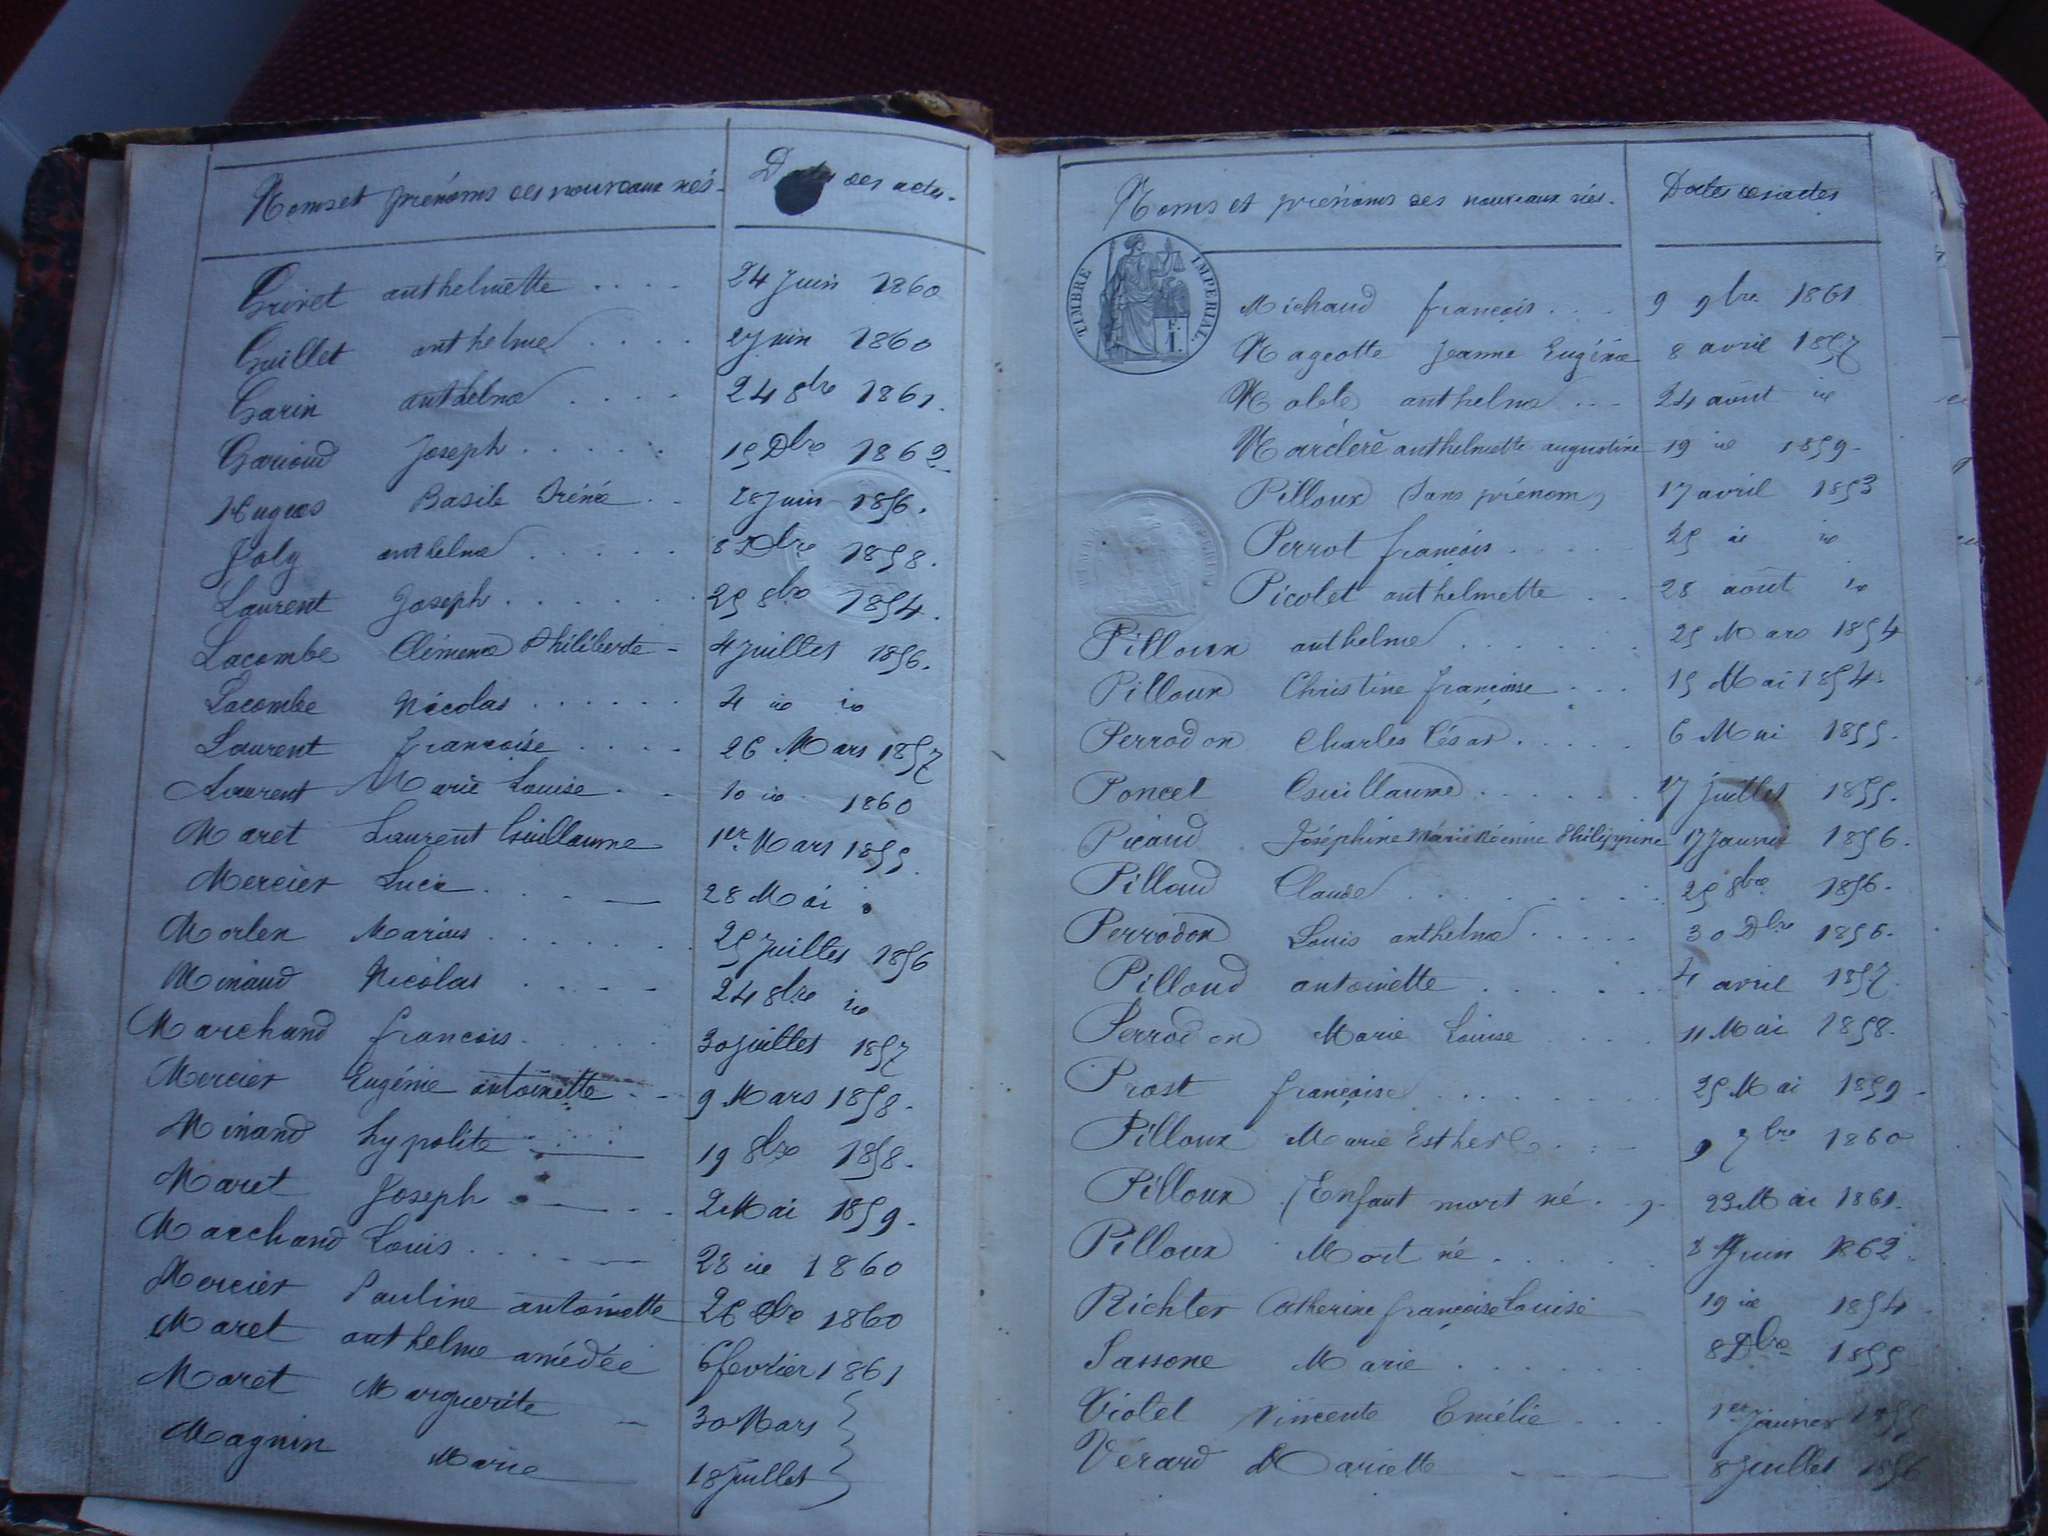 Noms et prénoms des nouveaux nés. Dates des actes.
Grinet anthelmette 24 Juin 1860
Guillet anthelme 27 juin 1860
Garin anthelme 24 8bre 1861.
Gavioud Joseph 15 Dbre 1862
Hugues Basile Iréné 28 Juin 1856.
Joly anthelme 8 Dbre 1858.
Laurent Joseph 25 8bre 1854.
Lacombe Climence Philiberte 4 juillet 1856.
Lacombe Nicolas 4 id id
Laurent françoise 26 Mars 1857
Laurent Marie Louise 10 id 1860
Maret Laurent Guillaume 1er Mars 1855
Mercier Lucie 28 Mai
Morlen Marius 25 Juillet 1856
Minaud Nicolas 24 8bre id
Marchand francois 30 juillet 1857
Mercier Eugénie antoinette 9 Mars 1858.
Minand hypolite 19 8bre 1858.
Maret Joseph 2 Mai 1859.
Marchand Louis 28 id 1860
Mercier Pauline antoinette 26 Dbre 1860
Maret anthelme amédée 6 fevrier 1861
Maret Marguerite 30 Mars
Magnin Marie 18 Juillet
Noms et prénoms des nouveaux nés. Dates des actes
TIMBRE IMPERIAL.
1 F.
Michaud françois 9 9bre 1861
Nageotte Jeanne Eugénie 8 avril 1857
Noble anthelme 24 août id
Narcleré anthelmette augustine 19 id 1859
Pilloux (sans prénom) 17 avril 1853
Perrot françois 25 id id
Picolet anthelmette 28 août id
Pilloux anthelme 25 Mars 1854
Pilloux Christine françoise 15 Mai 1854.
Perrodon Charles César 6 Mai 1855.
Poncet Guillaume 17 juillet 1855.
Picaud Joséphine Marie Philippine 17 Janvier 1856.
Pilloud Claude 25 8bre 1856.
Perrodon Louis anthelme 30 Dbre 1856.
Pilloud antoinette 4 avril 1857.
Perrodon Marie Louise 11 Mai 1858.
Prost françoise 25 Mai 1859
Pilloux Marie Esther 9 7bre 1860
Pilloux (Enfant mort né.) 23 Mai 1861.
Pilloux Mort né Juin 1862
Richter Catherine françoise Louise 19 id 1854
Sassone Marie 8 Dbre 1855
Violet Vincente Emélie 1er Janvier 1855
Vérard Mariette 8 Juillet 1856